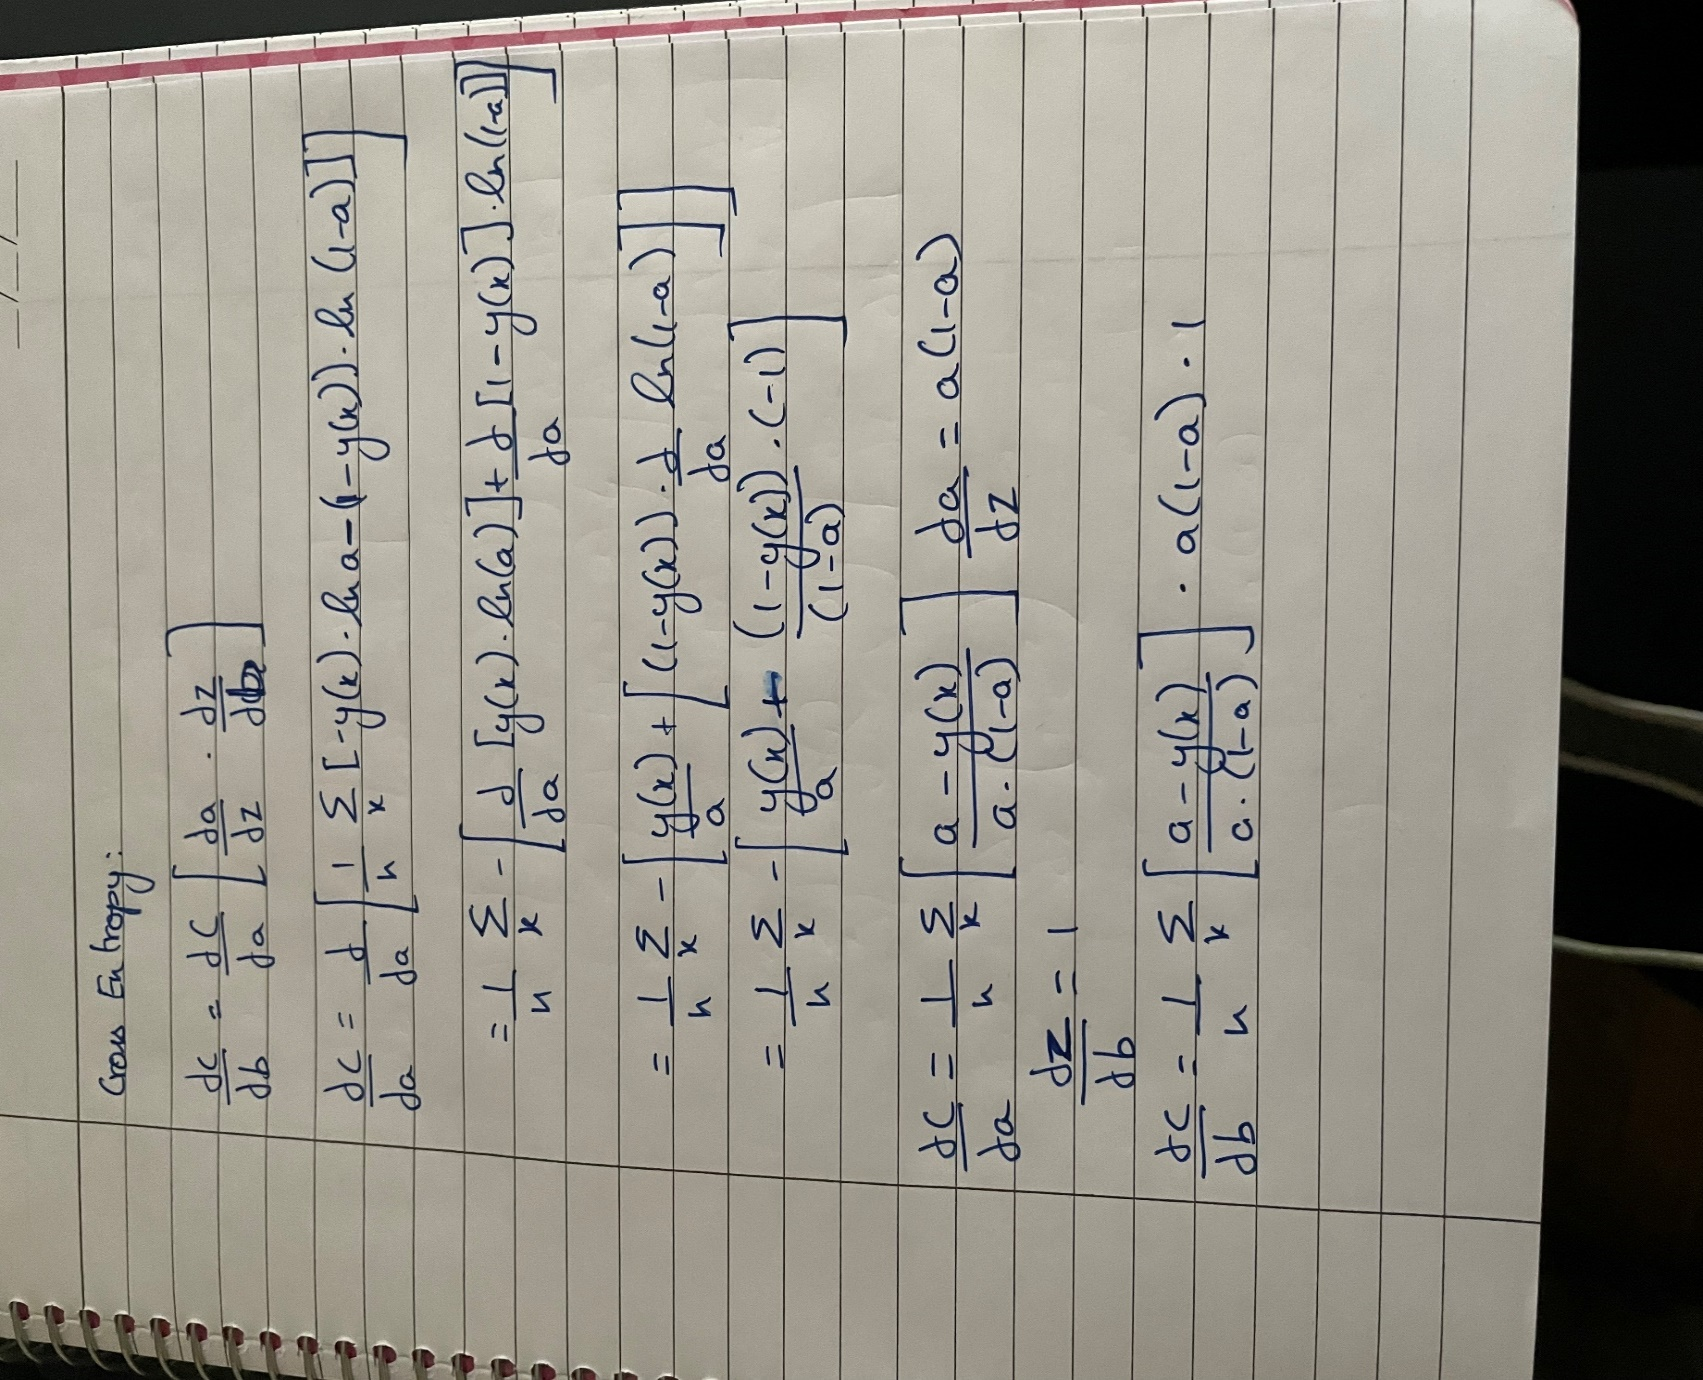 Cross Entropy:
dC/db = dC/da [ da/dz · dz/db ]
dC/da = d/da [ 1/n Σ_x [-y(x) · ln a - (1 - y(x)) · ln (1-a)] ]
= 1/n Σ_x - [ d/da [y(x) · ln(a)] + d/da [1 - y(x)] · ln(1-a)] ]
= 1/n Σ_x - [ y(x)/a + [ (1-y(x)) · d/da ln(1-a) ] ]
= 1/n Σ_x - [ y(x)/a + (1-y(x))/(1-a) · (-1) ]
dC/da = 1/n Σ_x [ a - y(x) / a · (1-a) ] da/dz = a(1-a)
dz/db = 1
dC/db = 1/n Σ_x [ a - y(x) / a · (1-a) ] · a(1-a) · 1